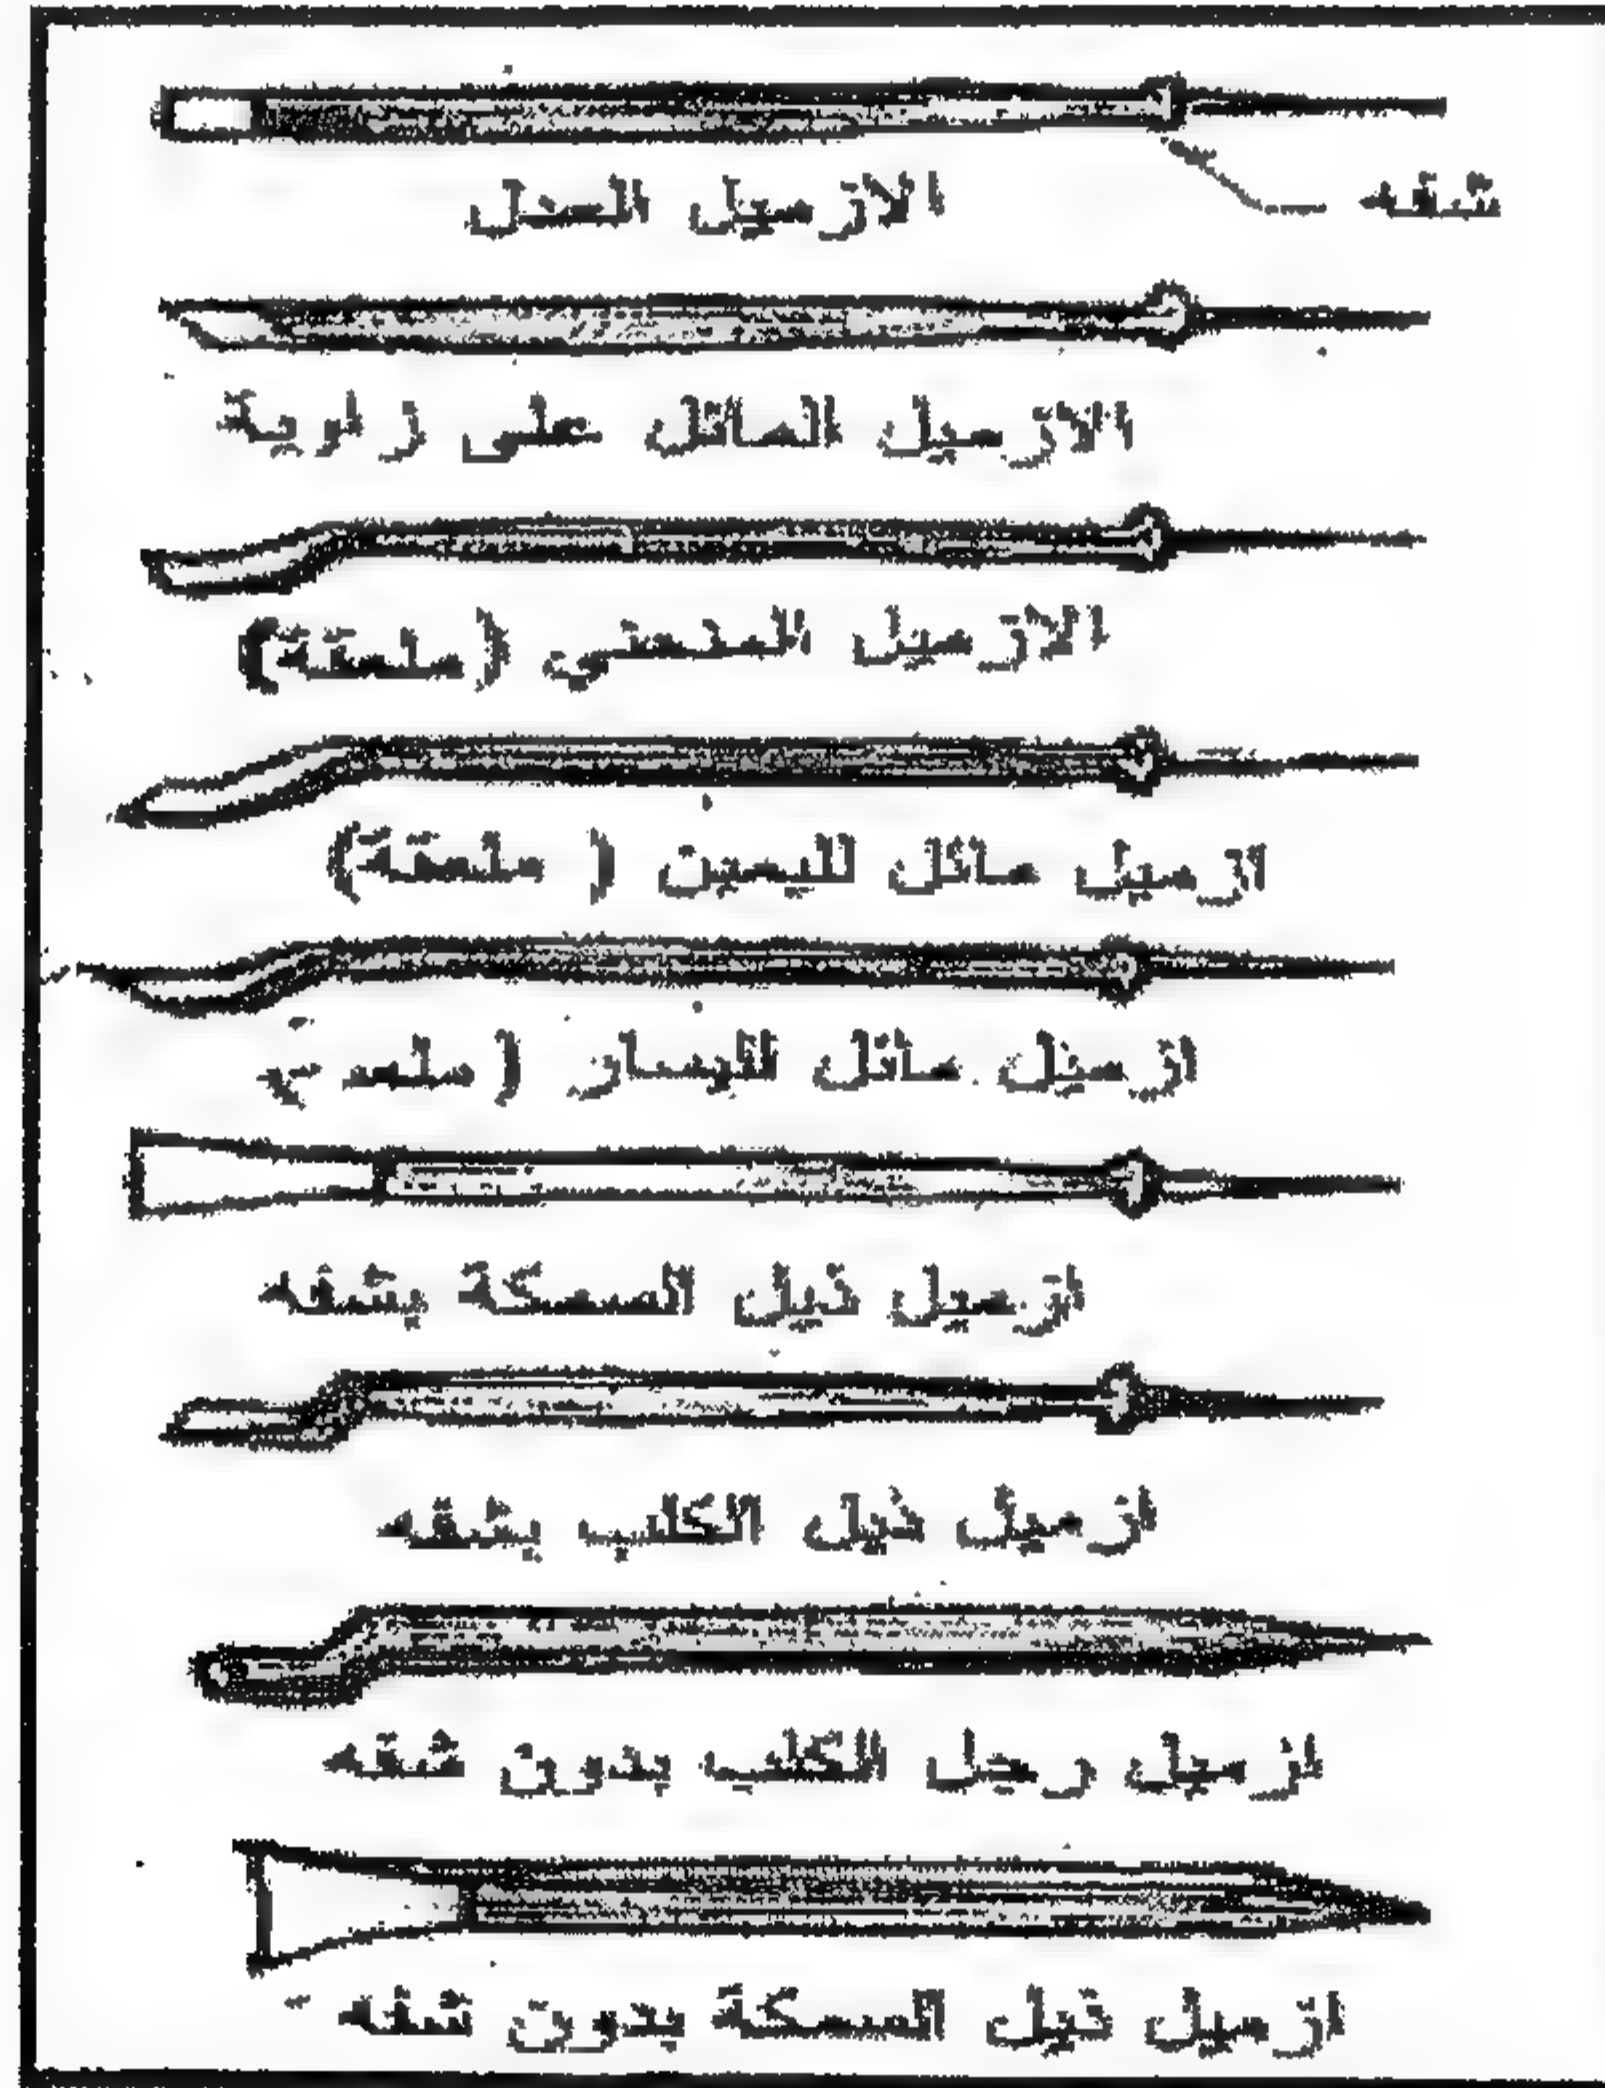 شفه
الازميل العدل
الازميل المائل على زاوية
الازميل المنحني (ملعقة)
ازميل مائل لليمين ( ملعقة)
ازميل مائل لليسار (
ازميل ذيل السمكة بشفه
ازميل ذيل الكلب بشفه
ازميل رجل الكلب بدون شفه
ازميل ذيل السمكة بدون شفه